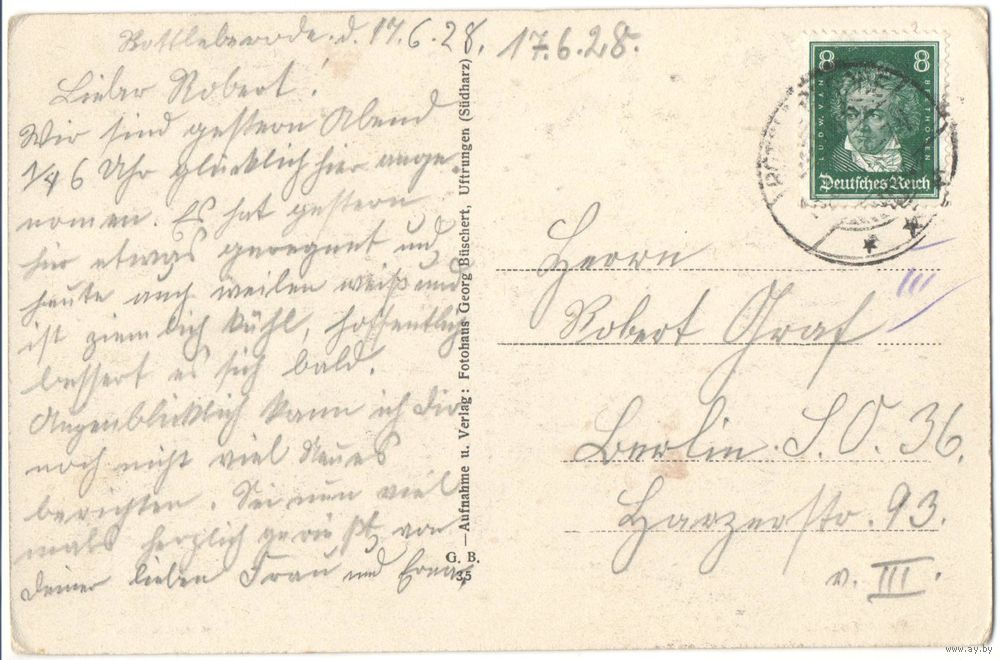 Rottleberode. d. 17.6.28.
17.6.28.
Lieber Robert!
Wir sind gestern Abend
1/4 6 Uhr glücklich hier ange-
nomen. Es hat gestern
hier etwas geregnet und
heute auch weilen weiß und
ist ziemlich kühl, hoffentlich
bessert es sich bald.
Augenblicklich kann ich Dir
noch nicht viel Neues
berichten. Sei nun viel
mals herzlich gegrüßt von
deiner lieben Frau und
Aufnahme u. Verlag: Fotohaus Georg Büschert, Uftrungen (Südharz)
G. B.
35
8 8
LUDW. VAN BEETHOVEN
Deutsches Reich
III
Herrn
Robert Graf
Berlin. S.O. 36.
Harzerstr. 93.
v. III.
www.ay.by